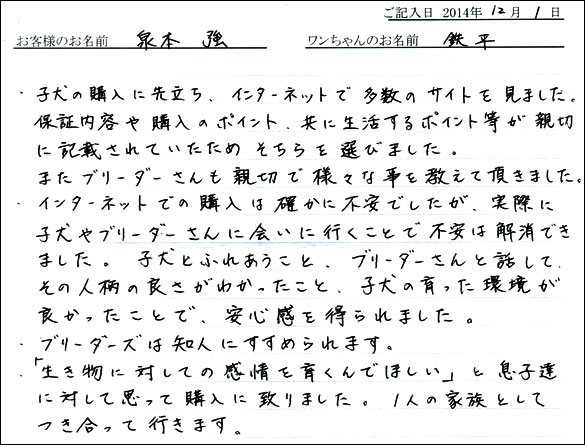 ご記入日 2014年 12月 1日
お客様のお名前 泉本 強 ワンちゃんのお名前 鉄平
・子犬の購入に先立ち、インターネットで多数のサイトを見ました。
保証内容や購入のポイント、共に生活するポイント等が親切
に記載されていたためそちらを選びました。
またブリーダーさんも親切で様々な事を教えて頂きました。
・インターネットでの購入は確かに不安でしたが、実際に
子犬やブリーダーさんに会いに行くことで不安は解消でき
ました。子犬とふれあうこと、ブリーダーさんと話して、
その人柄の良さがわかったこと、子犬の育った環境が
良かったことで、安心感を得られました。
・ブリーダーズは知人にすすめられます。
・「生き物に対しての感情を育くんでほしい」と息子達
に対して思って購入に致りました。1人の家族として
つき合って行きます。